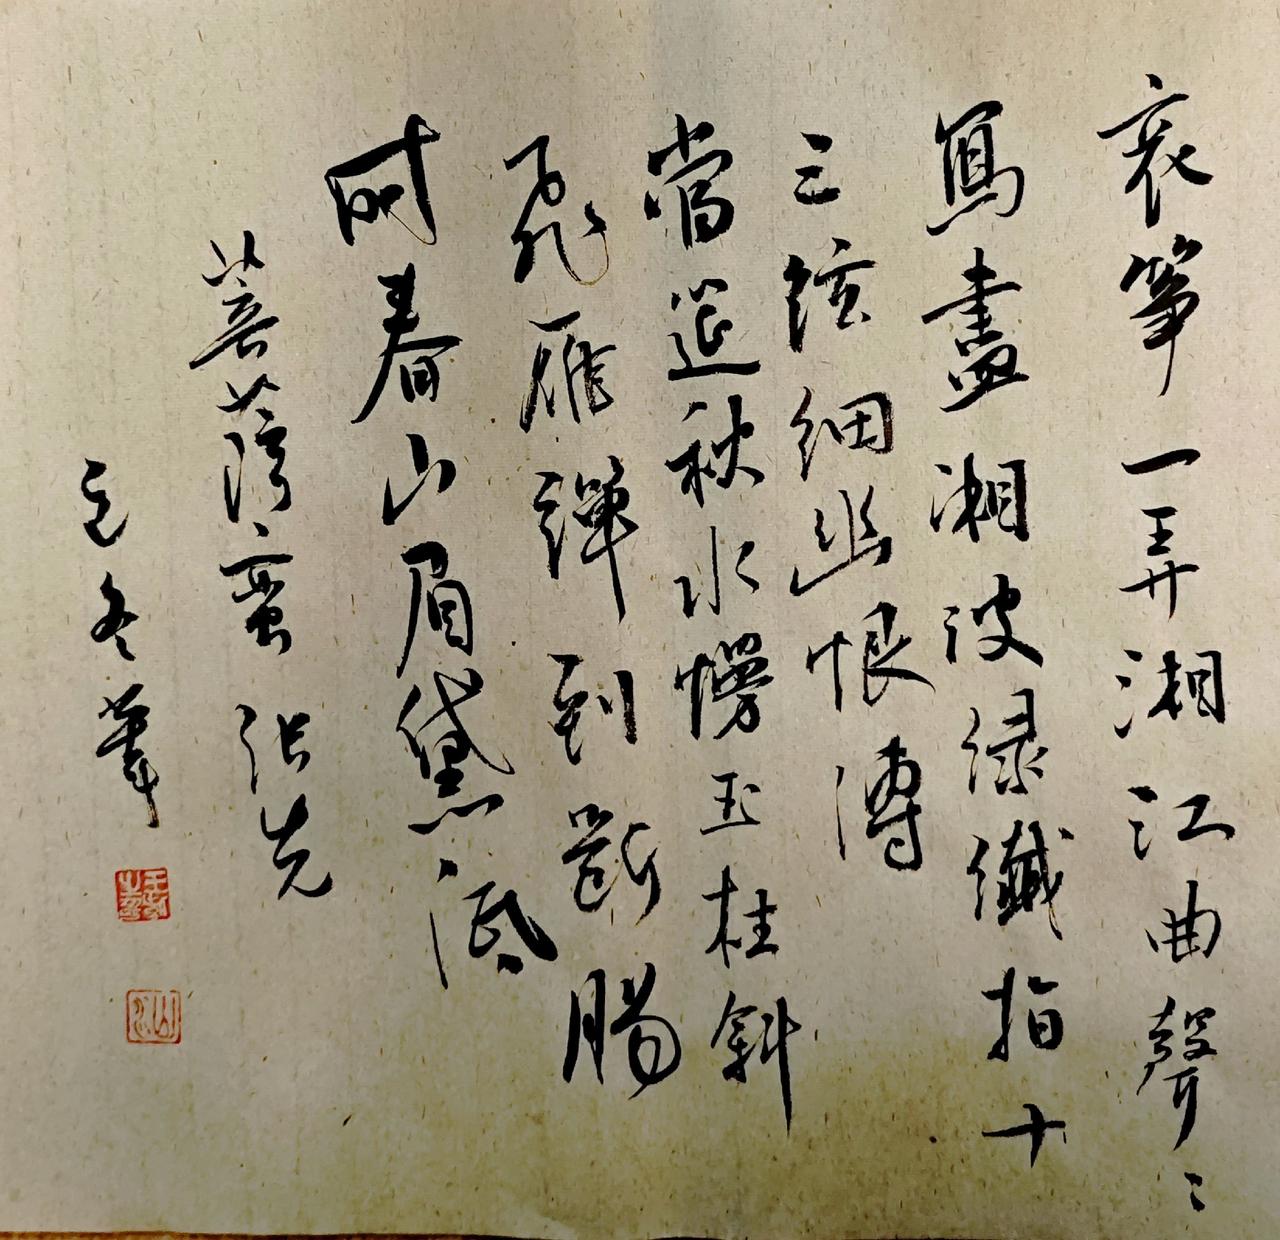 哀筝一弄湘江曲聲〻
寫盡湘波緑纖指十
三弦細幽恨傳
當筵秋水慢玉柱斜
飛雁彈到斷腸
時春山眉黛低
菩薩蠻 張先
冬筆